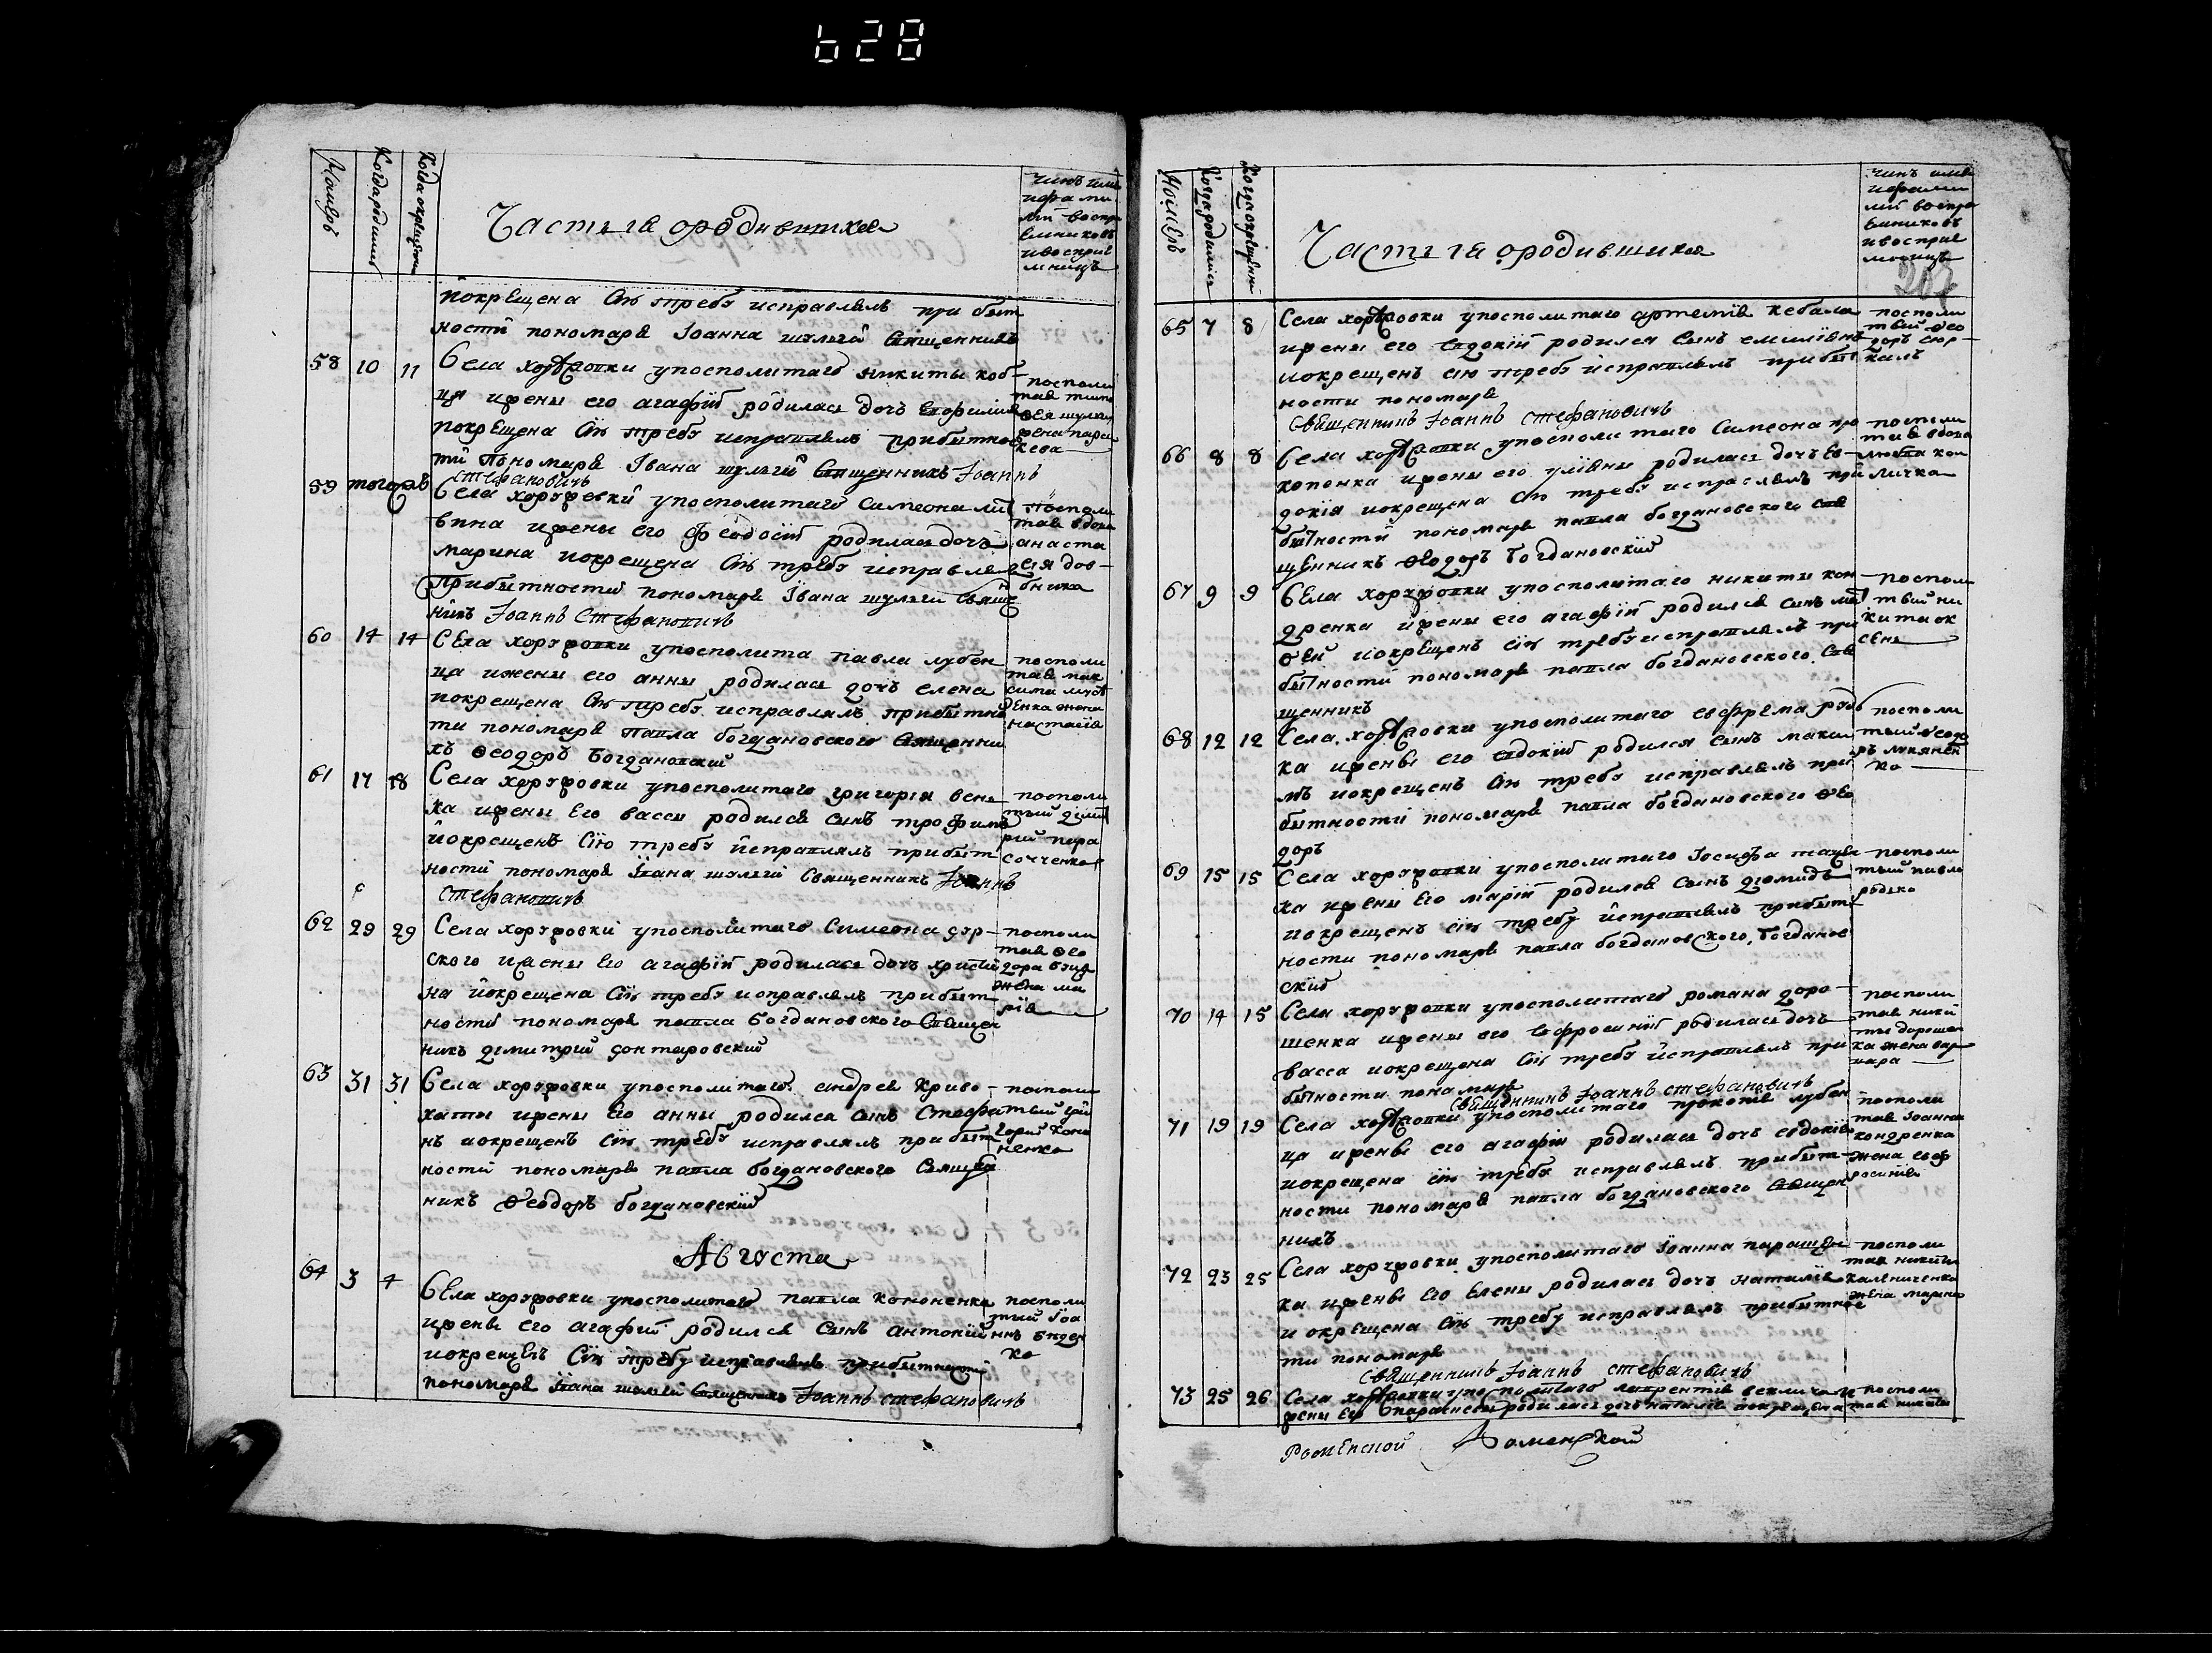 628
Номеръ
Когда родились
Когда окрещены
Часть 1я о родившихся
Чинъ имя
и фами
лии воспри
емниковъ
и восприе
мницъ
покрещена сію требу исправлялъ при быт
ности пономаря Іоанна Шулги священникъ
58 10 11 Села Хоружовки у посполитаго Никиты Коб-
ця и жены его Агафіи родилась дочь Евфимія
покрещена сію требу исправлялъ при бытнос
ти пономаря Івана Шулги священникъ Іоаннъ
Стефановичъ
посполи
тая
жена пара
кева
59 тогожъ Села Хоружевки у посполитаго Симеона Лит
вина и жены его Феодосіи родилась дочь
Марина покрещена сію требу исправля
при бытности пономаря Івана Шулги свяще
никъ Іоаннъ Стефановичъ
посполи
тая вдова
анаста
сія дов-
бниха
60 14 14 Села Хоружовки у посполита Павла Лубен
ца и жены его Анны родилась дочь Елена
покрещена сію требу исправлялъ при бытнос
ти пономаря Павла Богдановского священни
къ Феодоръ Богдановскій
посполи
тая мак
сима
енка жена
настасія
61 17 18 Села Хоружовки у посполитаго Григорія Вене
ка и жены его Вассы родился сынъ Трофимъ
и покрещенъ сію требу исправлялъ при быт
ности пономаря Івана Шулги священникъ Іоаннъ
Стефановичъ
посполи
тый дмит
рій пара
62 29 29 Села Хоружовки у посполитаго Симеона Дур-
ского и жены его Агафіи родилась дочь Христи
на и покрещена сію требу исправлялъ при быт
ности пономаря Павла Богдановского священ
никъ Димитрий
посполи
тая фео
дора
жена ма
рія
63 31 31 Села Хоружовки у посполитаго Андрея Криво-
хаты и жены его Анны родился сынъ Стефа
нъ покрещенъ сію требу исправлялъ при быт
ности пономаря Павла Богдановского священ
никъ Феодоръ Богдановскій
посполи
тый гри
горій коно
ненко
Августа
64 3 4 Села Хоружовки у посполитаго Павла Кононенка
и жены его Агафіи родился сынъ Антоній
покрещенъ сію требу исправлялъ при бытности
пономаря Івана Шулги священникъ Іоаннъ Стефановичъ
посполи
тый Іоа
ннъ
ко
Номеръ
Когда родились
Когда окрещены
Часть 1я о родившихся
Чинъ имя
и фами
лии воспри
емниковъ
и восприе
мницъ
65 7 8 Села Хоружовки у посполитаго Артемія Кебала
и жены его Евдокіи родился сынъ Емиліянъ
и покрещенъ сію требу исправлялъ при быт
ности пономаря
священникъ Іоаннъ Стефановичъ
посполи
тый фео
доръ
калъ
66 8 8 Села Хоружовки у посполитаго Симеона Про
копенка и жены его Уліяны родилась дочь Ев-
докія и окрещена сію требу исправлялъ при
бытности пономаря Павла Богдановского свя
щенникъ Феодоръ Богдановскій
посполи
тая вдова
67 9 9 Села Хоружовки у посполитаго Никиты Кон
дренка и жены его Агафіи родился сынъ Мат
фей и окрещенъ сію требу исправлялъ при
бытности пономаря Павла Богдановского свя
щенникъ
посполи
тый ни
кита ок
сень
68 12 12 Села Хоружовки у посполитаго Евфрема Рудь
ка и жены его Евдокіи родился сынъ Макси
мъ и окрещенъ сію требу исправлялъ при
бытности пономаря Павла Богдановского Фео
доръ
посполи
тый феодо
ръ лукянен
ко
69 15 15 Села Хоружовки у посполитаго Іосифа
ка и жены его Маріи родился сынъ Діомидъ
и окрещенъ сію требу исправлялъ при быт
ности пономаря Павла Богдановского, Богданов
скій
посполи
тый павло
родко
70 14 15 Села Хоружовки у посполитаго Романа Доро-
шенка и жены его Евфросиніи родилась дочь
Васса и окрещена сію требу исправлялъ при
бытности пономаря
священникъ Іоаннъ Стефановичъ
посполи
тая ники
ты дорошен
ка жена вар
вара
71 19 19 Села Хоружовки у посполитаго Прокопія Лубен
ца и жены его Агафіи родилась дочь Евдокія
и окрещена сію требу исправлялъ при быт-
ности пономаря Павла Богдановского священ
никъ
посполи
тая Іоанна
кондренка
жена евф
росинія
72 23 25 Села Хоружовки у посполитаго Іоанна
ка и жены его Елены родилась дочь Наталія
и окрещена сію требу исправлялъ при бытнос
ти пономаря
священникъ Іоаннъ Стефановичъ
посполи
тая никиты
калениченка
жена марина
73 25 26 Села Хоружовки у посполитаго Лаврентія Великача и
жены его Параскевы родилась дочь Наталія и окрещена
посполи
тая никиты
Роменской